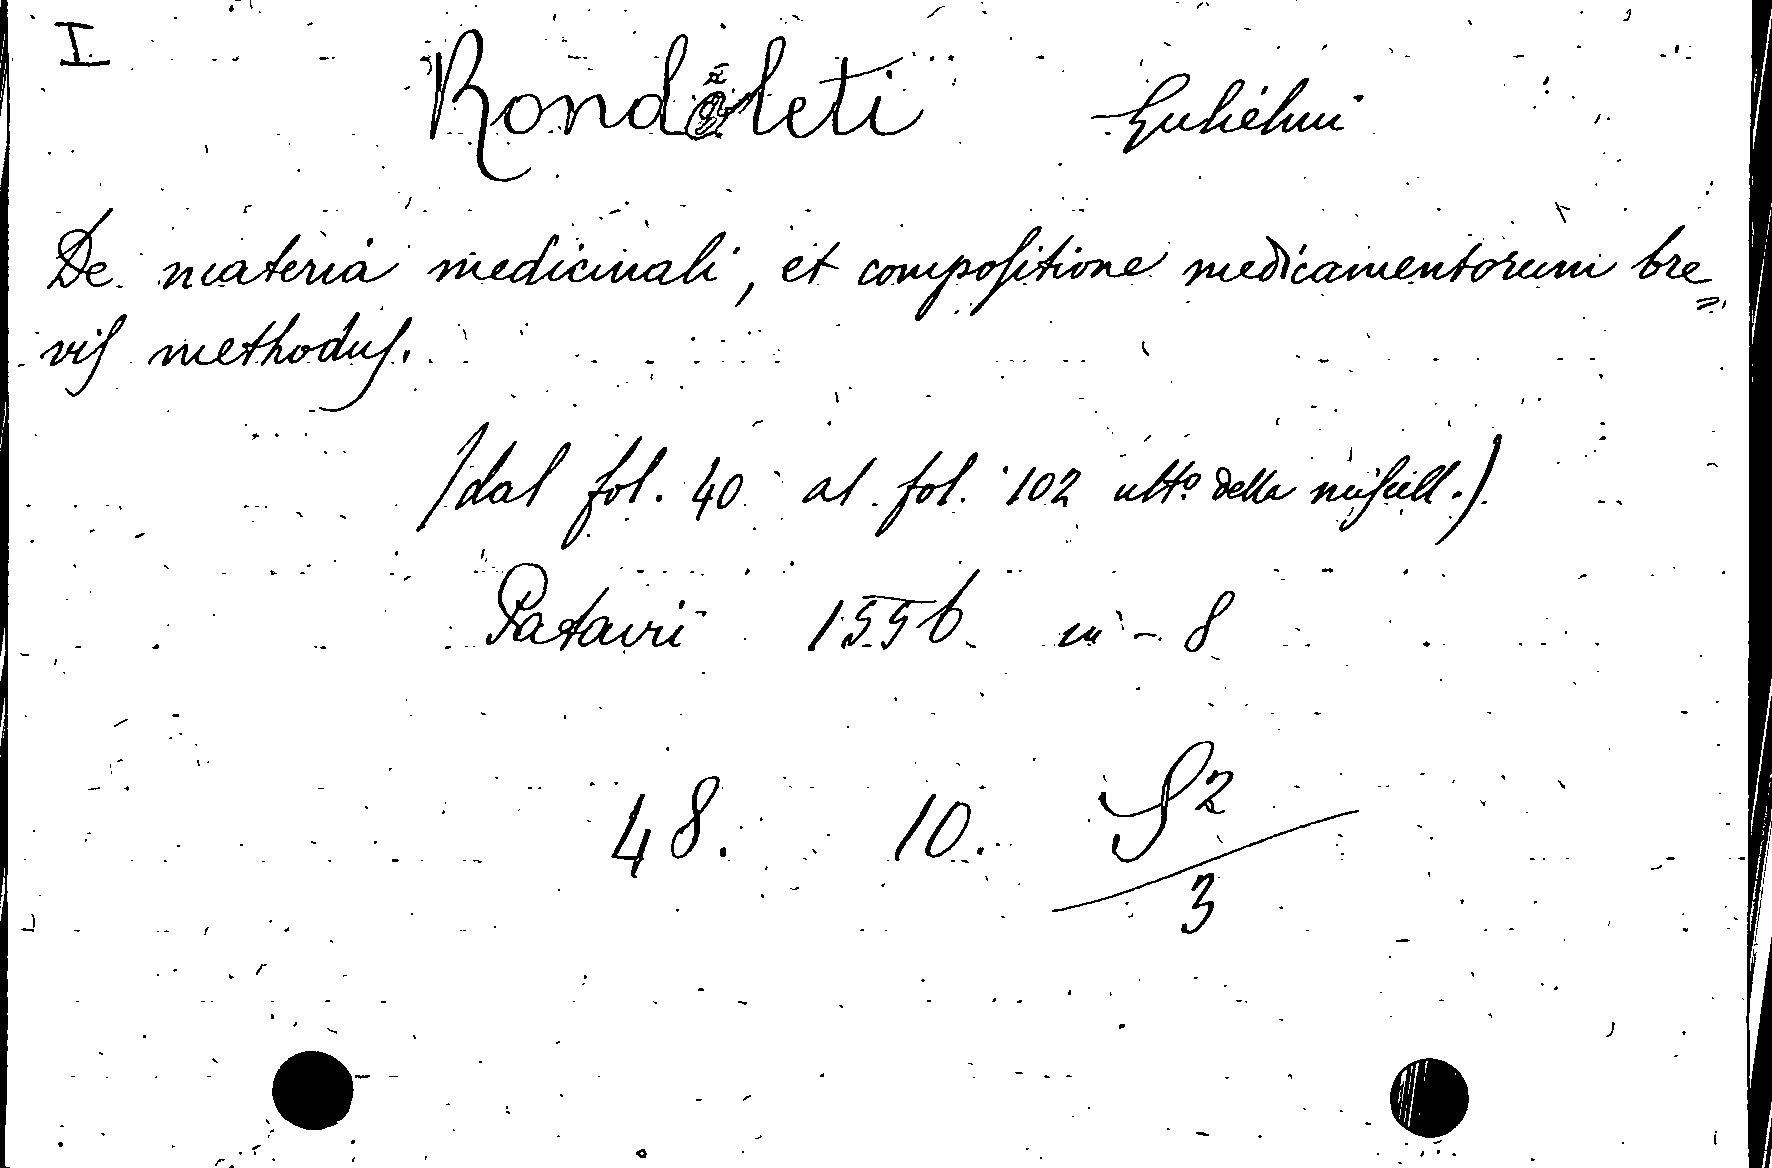 I
Rondeleti Gulielmi
De materia medicinali, et compoſitione medicamentorum bre=
viſ methoduſ.
(dal fol. 40 al fol. 102 ultº della miſcell.)
Patavii 1556 in-8
48. 10. S 2
3